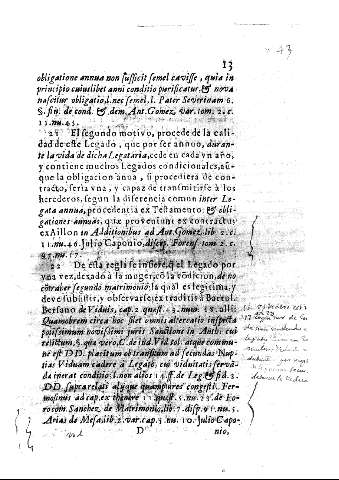 43
13
obligatione annua non sufficit semel cavisse, quia in
principio cuiuslibet anni conditio purificatur, & nova
nascitur obligatio, l. nec semel. l. Pater Severinam 6.
§. fin. de cond. & dem. Ant. Gomez, var. tom. 2. c.
11. nu. 45.
21 El segundo motivo, procede de la cali-
dad de este Legado, que por ser annuo, duran-
te la vida de dicha Legataria, cede en cada vn año,
y contiene muchos Legados condicionales, aũ-
que la obligacion ánua, si procediera de con-
tracto, seria vna, y capaz de transmitirse à los
herederos, segun la diferencia comun inter Le-
gata annua, procedentia ex Testamento, & obli-
gationes annuas, quæ proveniunt ex contractu,
ex Aillon in Additionibus ad Ant. Gomez, lib. 2. c.
11. nu. 46. Julio Caponio, discep. Forens. tom. 2. c.
95. nu. 17.
22 De esta regla se infiere, q̃ el Legado por
vna vez, dexado à la muger, cõ la cõdicion, de no
cõtraher segundo matrimonio, la qual es legitima, y
deve subsistir, y observarse, ex traditis à Bartol.
Bersano de Viduis, cap. 2. quæst. 43. num. 52. alli:
Quamobrem circa hoc sicet omnis altercatio inspecta
potissimum novissimi juris Sanctione in Auth. cui
relictum, §. quæ vero, C. de ind. Vid. tol. atque commu-
ne est DD. placitum obtransitum ad secundas Nup-
tias Viduam cadere à Legato, cui viduitatis serva-
dæ inerat conditio, l. non alios 14. ff. de Leg. & fid. 3.
DD. supra relati, alijque quamplures congesti. Fer-
mosinus ad cap. ex thenere 11. quæst. 5. nu. 23. de Fo-
ro com. Sanchez de Matrimonio, lib. 7. disp. 91. nu. 5.
Arias de Mesa, lib. 2. var. cap. 3. nu. 10. Julio Capo-
D nio,